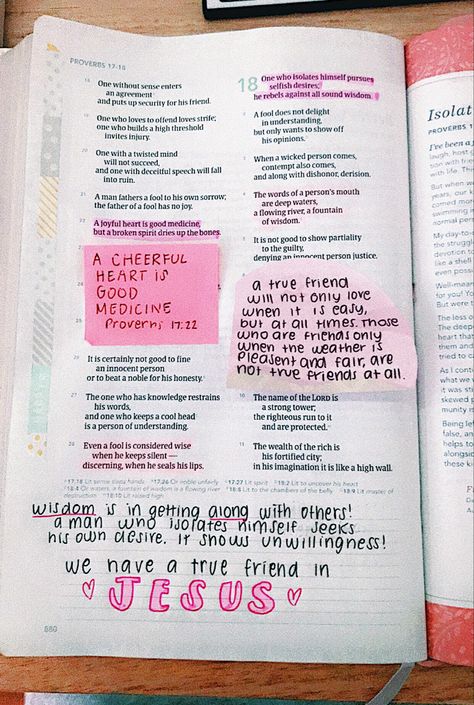 PROVERBS 17–18
18 One without sense enters
an agreement
and puts up security for his friend.
19 One who loves to offend loves strife;
one who builds a high threshold
invites injury.
20 One with a twisted mind
will not succeed,
and one with deceitful speech will fall
into ruin.
21 A man fathers a fool to his own sorrow;
the father of a fool has no joy.
22 A joyful heart is good medicine,
but a broken spirit dries up the bones.
A CHEERFUL
HEART IS
GOOD
MEDICINE
Proverbs 17:22
26 It is certainly not good to fine
an innocent person
or to beat a noble for his honesty.
27 The one who has knowledge restrains
his words,
and one who keeps a cool head
is a person of understanding.
28 Even a fool is considered wise
when he keeps silent —
discerning, when he seals his lips.
18 One who isolates himself pursues
selfish desires;
he rebels against all sound wisdom.
2 A fool does not delight
in understanding,
but only wants to show off
his opinions.
3 When a wicked person comes,
contempt also comes,
and along with dishonor, derision.
4 The words of a person's mouth
are deep waters,
a flowing river, a fountain
of wisdom.
5 It is not good to show partiality
to the guilty,
denying an innocent person justice.
a true friend
will not only love
when it is easy,
but at all times. Those
who are friends only
when the weather is
pleasent and fair, are
not true friends at all.
10 The name of the LORD is
a strong tower;
the righteous run to it
and are protected.
11 The wealth of the rich is
his fortified city;
in his imagination it is like a high wall.
17:18 Lit sense slaps hands 17:26 Or noble unfairly 17:27 Lit spirit 18:2 Lit to uncover his heart
18:4 Or waters, a fountain of wisdom is a flowing river 18:8 Lit to the chambers of the belly 18:9 Lit master of
destruction 18:10 Lit raised high
wisdom is in getting along with others!
a man who isolates himself seeks
his own desire. It shows unwillingness!
we have a true friend in
JESUS
880
Isolat
PROVERBS 1